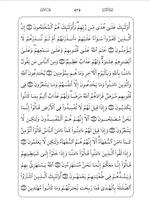 أُولَٰئِكَ عَلَىٰ هُدًى مِّن رَّبِّهِمْ وَأُولَٰئِكَ هُمُ الْمُفْلِحُونَ إِنَّ
الَّذِينَ كَفَرُوا سَوَاءٌ عَلَيْهِمْ أَأَنذَرْتَهُمْ أَمْ لَمْ تُنذِرْهُمْ لَا
يُؤْمِنُونَ خَتَمَ اللَّهُ عَلَىٰ قُلُوبِهِمْ وَعَلَىٰ سَمْعِهِمْ وَعَلَىٰ
أَبْصَارِهِمْ غِشَاوَةٌ وَلَهُمْ عَذَابٌ عَظِيمٌ وَمِنَ النَّاسِ مَن يَقُولُ
آمَنَّا بِاللَّهِ وَبِالْيَوْمِ الْآخِرِ وَمَا هُم بِمُؤْمِنِينَ يُخَادِعُونَ اللَّهَ
وَالَّذِينَ آمَنُوا وَمَا يَخْدَعُونَ إِلَّا أَنفُسَهُمْ وَمَا يَشْعُرُونَ فِي
قُلُوبِهِم مَّرَضٌ فَزَادَهُمُ اللَّهُ مَرَضًا وَلَهُمْ عَذَابٌ أَلِيمٌ بِمَا كَانُوا
يَكْذِبُونَ وَإِذَا قِيلَ لَهُمْ لَا تُفْسِدُوا فِي الْأَرْضِ قَالُوا إِنَّمَا
نَحْنُ مُصْلِحُونَ أَلَا إِنَّهُمْ هُمُ الْمُفْسِدُونَ وَلَٰكِن لَّا
يَشْعُرُونَ وَإِذَا قِيلَ لَهُمْ آمِنُوا كَمَا آمَنَ النَّاسُ قَالُوا أَنُؤْمِنُ
كَمَا آمَنَ السُّفَهَاءُ أَلَا إِنَّهُمْ هُمُ السُّفَهَاءُ وَلَٰكِن لَّا يَعْلَمُونَ
وَإِذَا لَقُوا الَّذِينَ آمَنُوا قَالُوا آمَنَّا وَإِذَا خَلَوْا إِلَىٰ شَيَاطِينِهِمْ
قَالُوا إِنَّا مَعَكُمْ إِنَّمَا نَحْنُ مُسْتَهْزِئُونَ اللَّهُ يَسْتَهْزِئُ بِهِمْ
وَيَمُدُّهُمْ فِي طُغْيَانِهِمْ يَعْمَهُونَ أُولَٰئِكَ الَّذِينَ اشْتَرَوُا
الضَّلَالَةَ بِالْهُدَىٰ فَمَا رَبِحَت تِّجَارَتُهُمْ وَمَا كَانُوا مُهْتَدِينَ